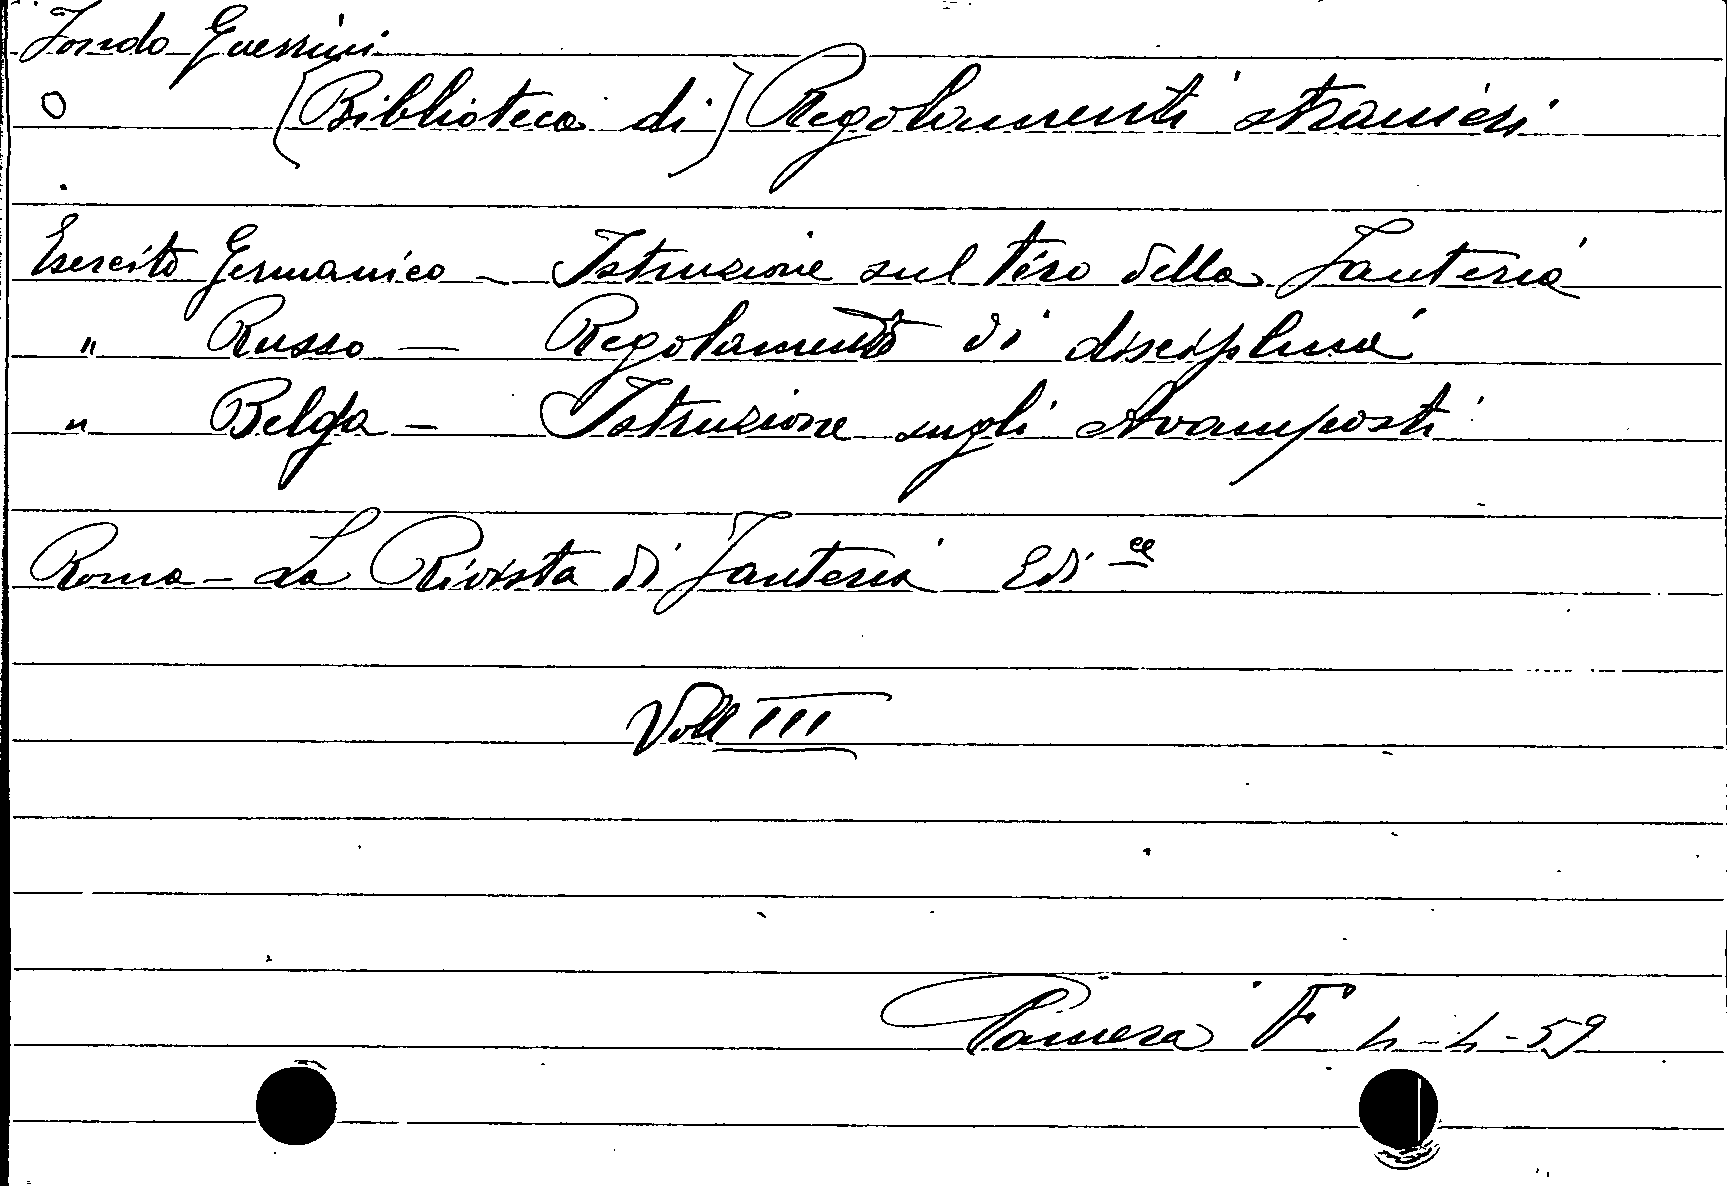 Fondo Guerrini
O [Biblioteca di] Regolamenti stranieri
Esercito Germanico - Istruzione sul tiro della Fanteria
" Russo - Regolamento di disciplina
" Belga - Istruzione sugli Avamposti
Roma - La Rivista di Fanteria Edi ce
Voll III
Camera F 4-4-59